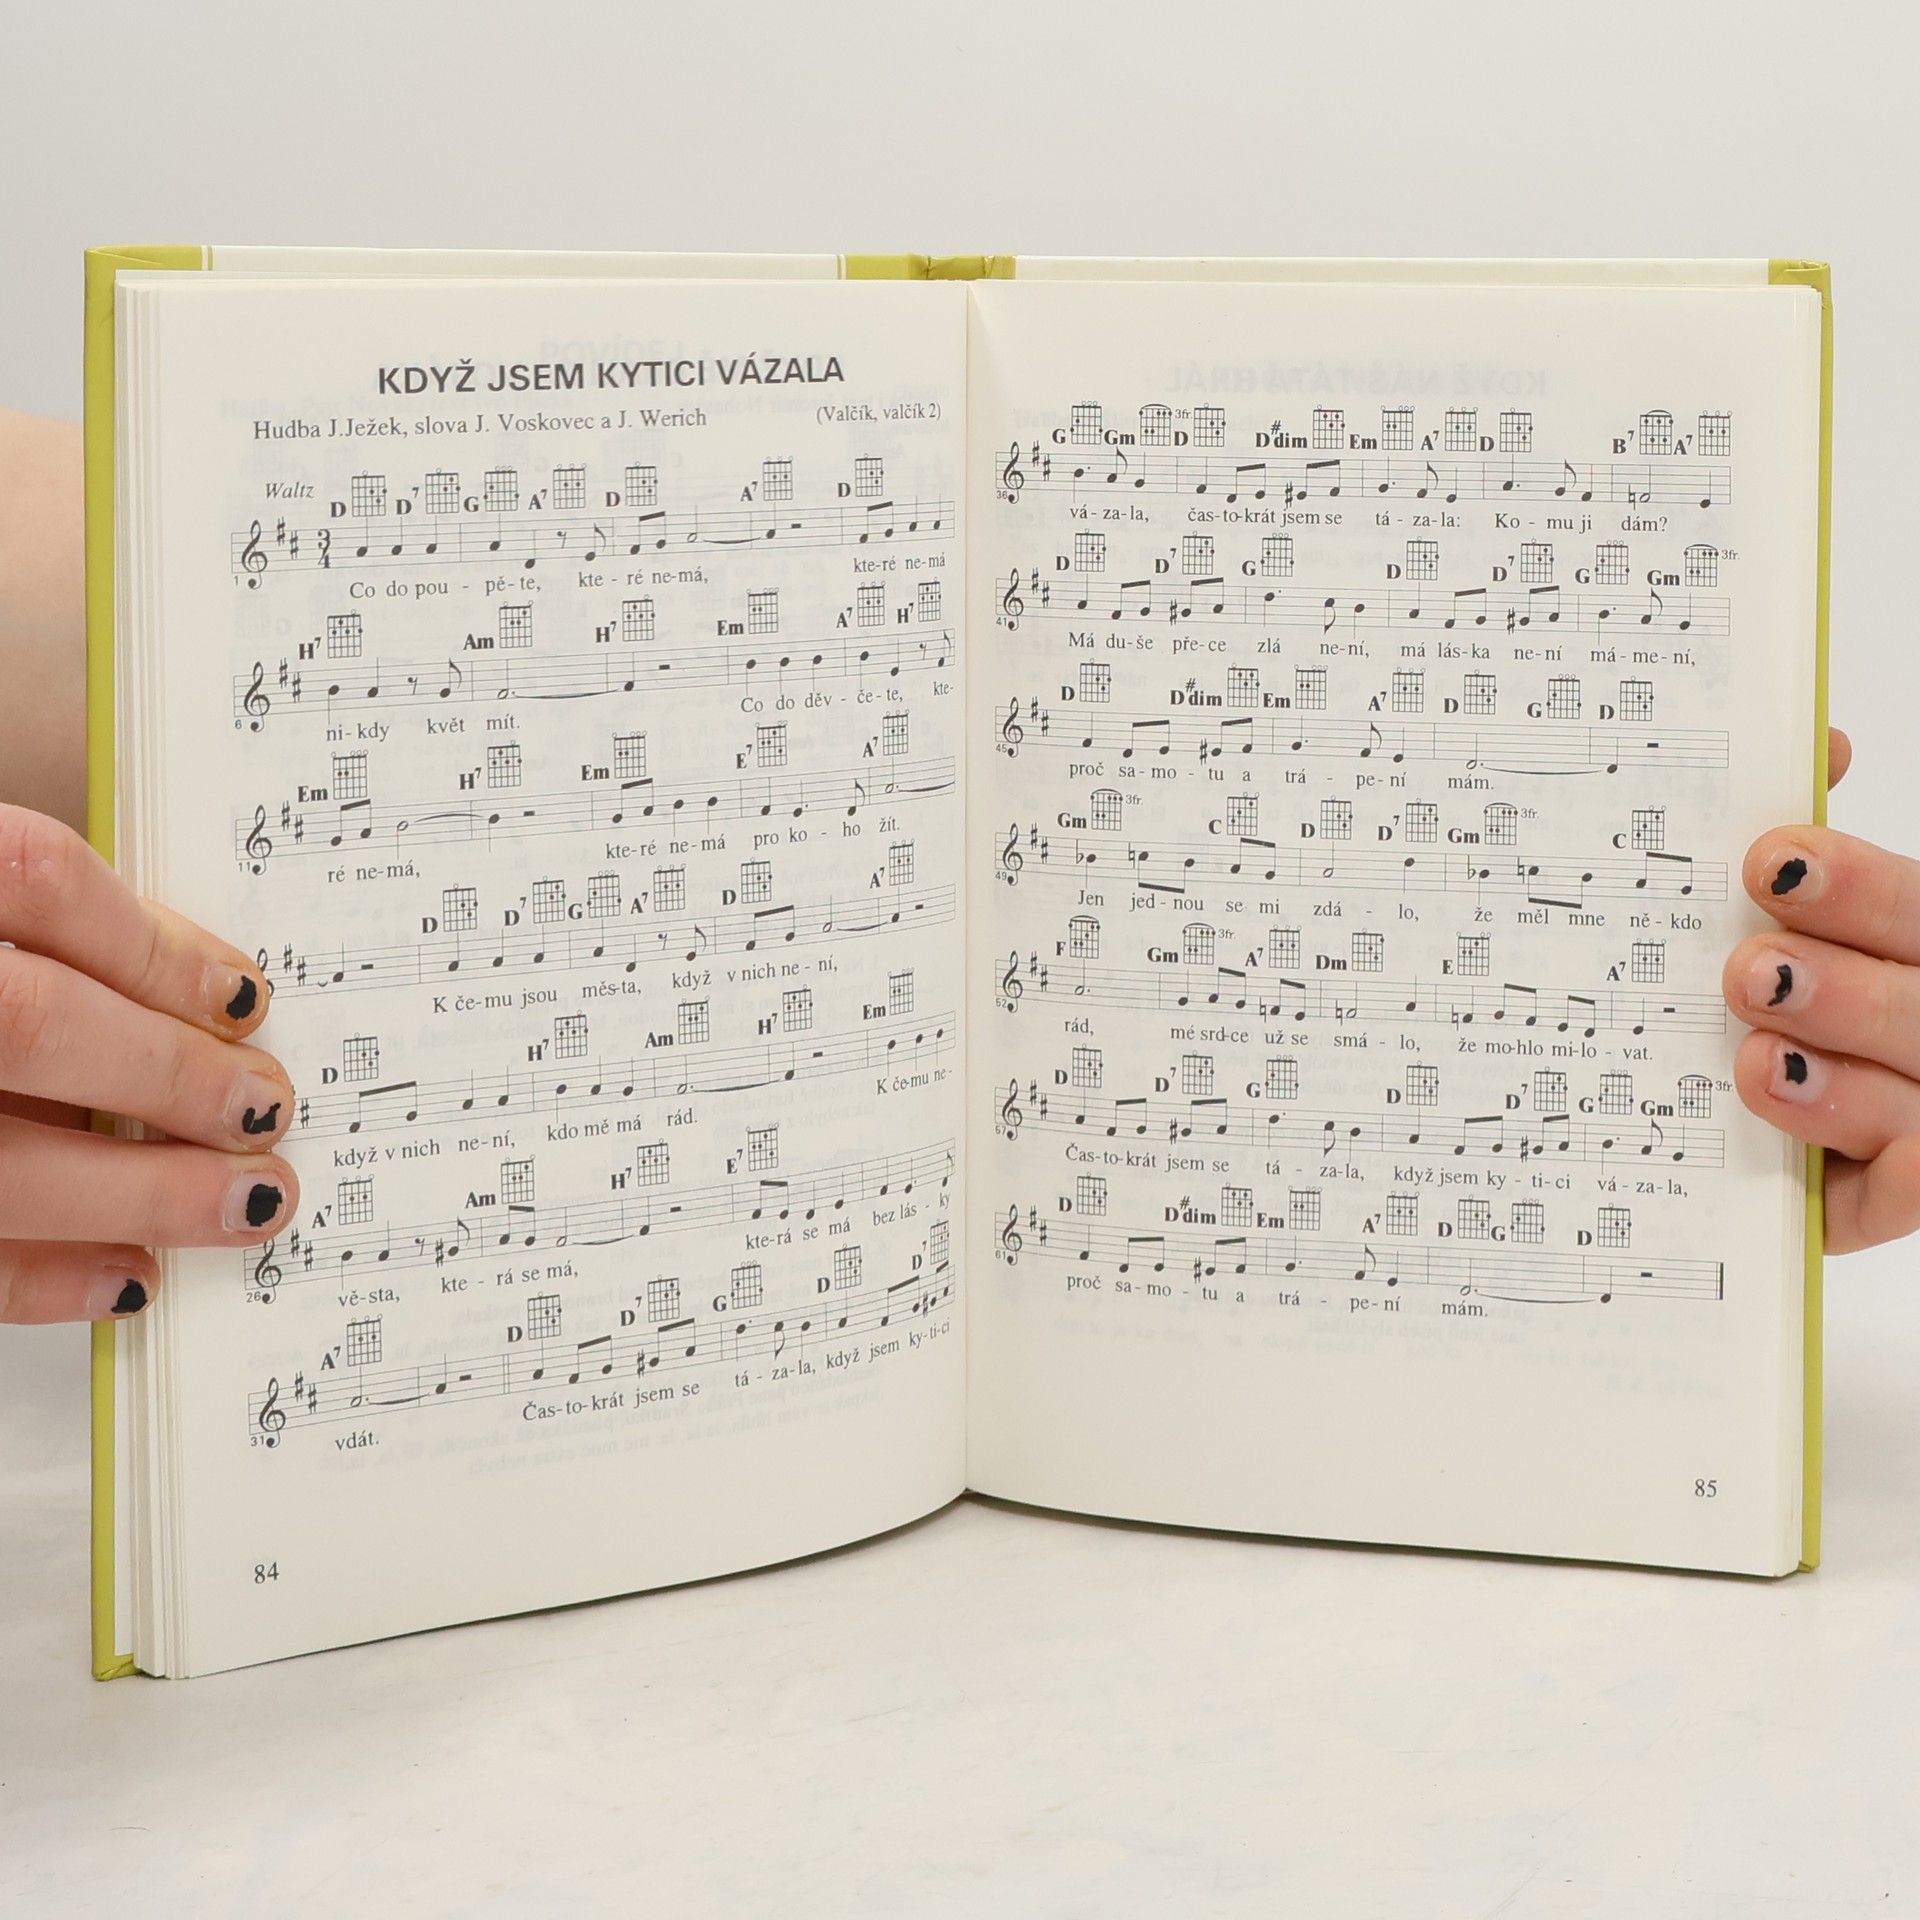 KDYŽ JSEM KYTICI VÁZALA
Hudba J.Ježek, slova J. Voskovec a J. Werich (Valčík, valčík 2)
Waltz D D7 G A7 D A7 D
3 4
1
Co do pou - pě - te, kte - ré ne-má, kte-ré ne-má
H7 Am H7 Em A7 H7
6
ni - kdy květ mít. Co do děv - če - te, kte-
Em H7 Em E7 A7
11
ré ne-má, kte-ré ne-má pro ko - ho žít.
D D7 G A7 D A7
K če-mu jsou měs-ta, když v nich ne - ní,
D H7 Am H7 Em
když v nich ne-ní, kdo mě má rád. K če-mu ne-
A7 Am H7 E7
26
vě-sta, kte - rá se má, kte-rá se má bez lás - ky
A7 D D7 G D D7
31
vdát. Čas-to-krát jsem se tá - za-la, když jsem ky-ti-ci
84
G Gm 3fr. D D#dim Em A7 D B7 A7
36
vá - za-la, čas-to-krát jsem se tá - za-la: Ko - mu ji dám?
D D7 G D D7 G Gm 3fr.
41
Má du-še pře-ce zlá ne-ní, má lás-ka ne-ní má-me-ní,
D D#dim Em A7 D G D
45
proč sa-mo - tu a trá - pe-ní mám.
Gm 3fr. C D D7 Gm 3fr. C
49
Jen jed-nou se mi zdá - lo, že měl mne ně-kdo
F Gm 3fr. A7 Dm E A7
52
rád, mé srd-ce už se smá - lo, že mo-hlo mi-lo - vat.
D D7 G D D7 G Gm 3fr.
57
Čas-to-krát jsem se tá - za-la, když jsem ky - ti-ci vá - za-la,
D D#dim Em A7 D G D
61
proč sa-mo - tu a trá - pe-ní mám.
85